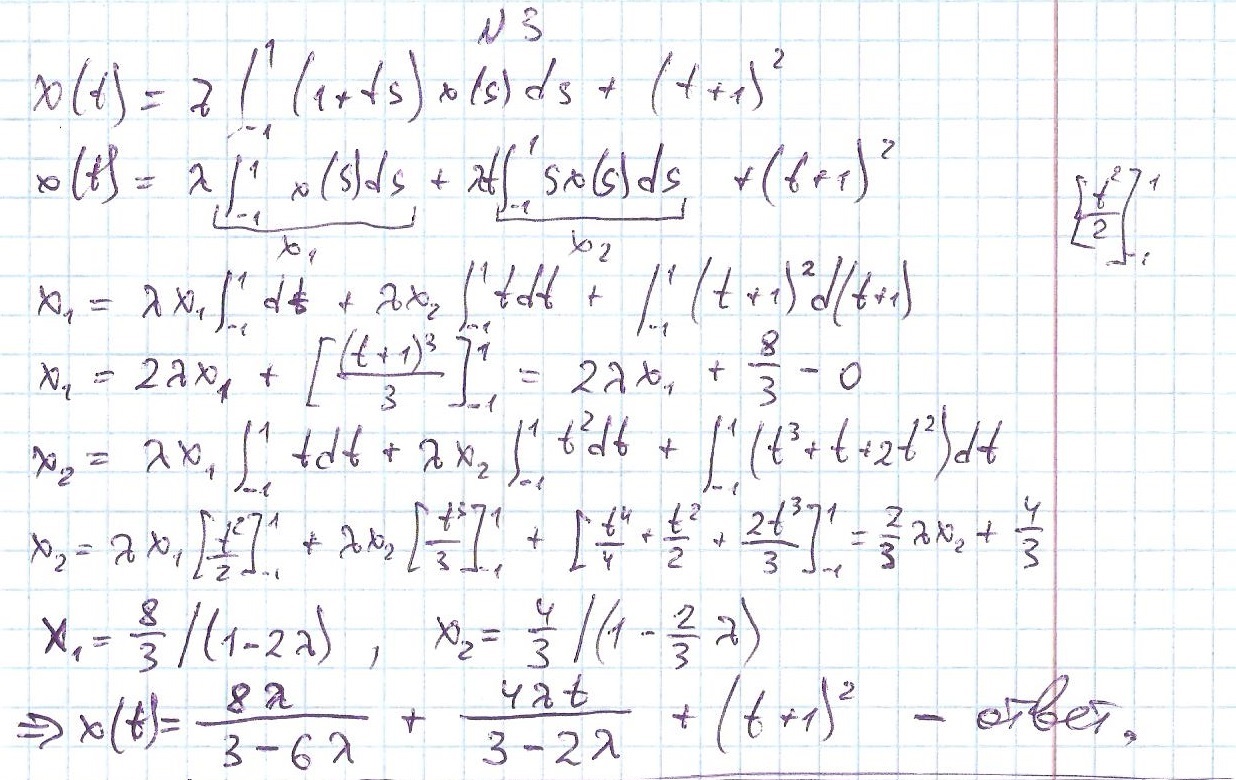 N 3
x(t) = λ ∫₋₁¹ (1+ts) x(s) ds + (t+1)²
x(t) = λ ∫₋₁¹ x(s)ds + λt∫₋₁¹ sx(s)ds + (t+1)²
x₁ x₂
[t²/2]₋₁¹
x₁ = λx₁∫₋₁¹ dt + λx₂ ∫₋₁¹ tdt + ∫₋₁¹ (t+1)²d(t+1)
x₁ = 2λx₁ + [(t+1)³/3]₋₁¹ = 2λx₁ + 8/3 - 0
x₂ = λx₁ ∫₋₁¹ tdt + λx₂ ∫₋₁¹ t²dt + ∫₋₁¹ (t³+t+2t²)dt
x₂ = λx₁[t²/2]₋₁¹ + λx₂[t³/3]₋₁¹ + [t⁴/4 + t²/2 + 2t³/3]₋₁¹ = 2/3 λx₂ + 4/3
x₁ = 8/3 /(1-2λ) , x₂ = 4/3 /(1 - 2/3 λ)
⇒ x(t) = 8λ/(3-6λ) + 4λt/(3-2λ) + (t+1)² - ответ.